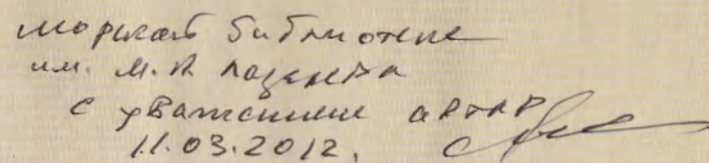 Морской библиотеке
им. М. П. Лазарева
с уважением автор
11.03.2012.